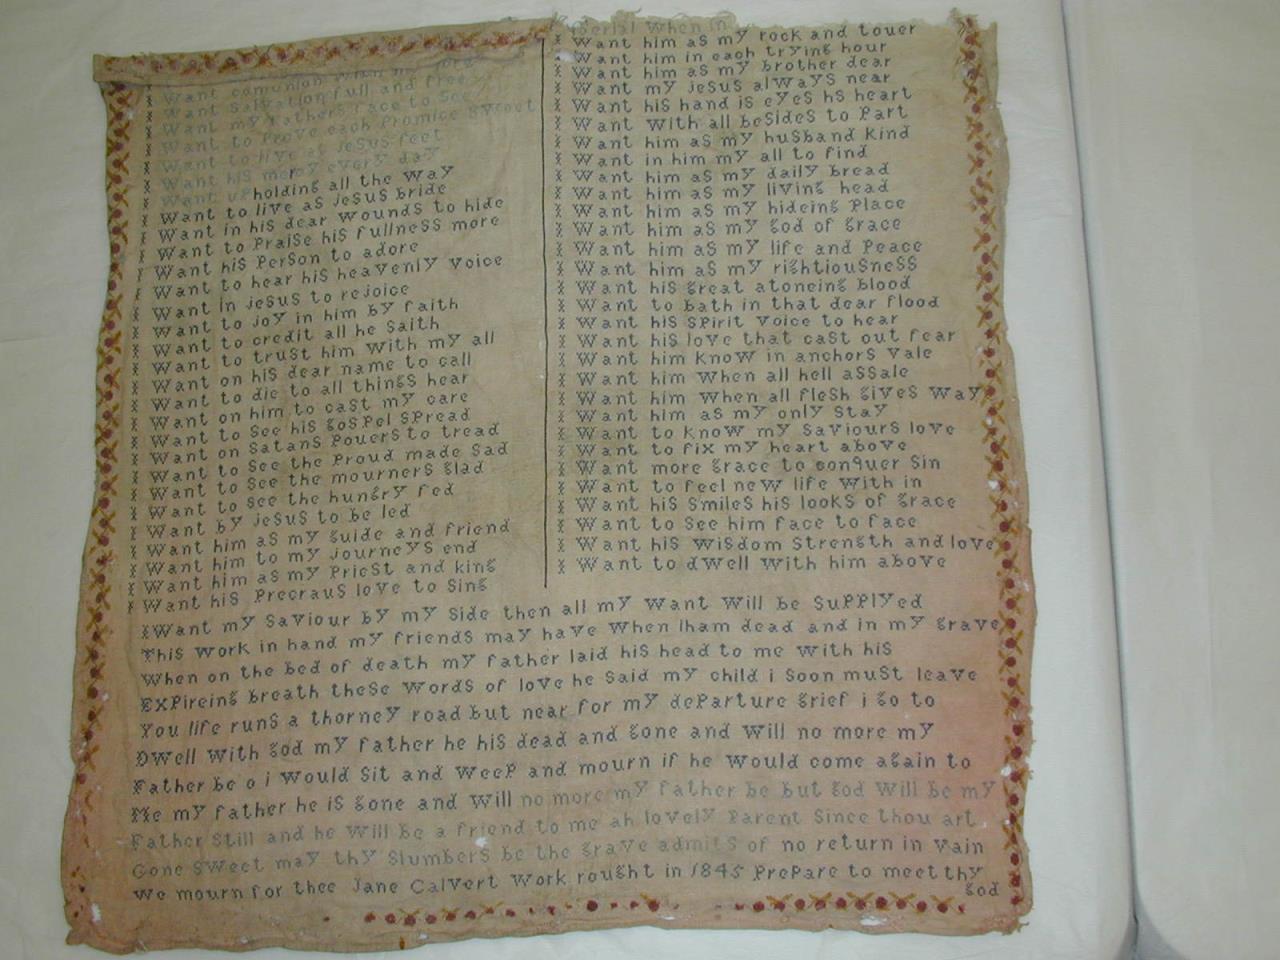 Want comunion with my
Want Salvation full and free
Want my Fathers face to See
Want to Prove each Promice Sweet
Want to live at jesus feet
Want his mercy every day
Want upholding all the Way
Want to live as jesus bride
Want in his dear Wounds to hide
Want to Praise his fullness more
Want his Person to adore
Want to hear his heavenly Voice
Want in jesus to rejoice
Want to joy in him by faith
Want to credit all he Saith
Want to trust him With my all
Want on his dear name to call
Want to die to all things hear
Want on him to cast my care
Want to See his gospel Spread
Want on Satans Pouers to tread
Want to See the Proud made Sad
Want to See the mourners glad
Want to See the hungry fed
Want by jesus to be led
Want him as my guide and friend
Want him to my journeys end
Want him as my Priest and king
Want his Precraus love to Sing
When in
Want him as my rock and touer
Want him in each trying hour
Want him as my brother dear
Want my jesus always near
Want his hand is eyes hs heart
Want With all besides to Part
Want him as my husband kind
Want in him my all to find
Want him as my daily bread
Want him as my living head
Want him as my hideing Place
Want him as my god of grace
Want him as my life and Peace
Want him as my rightiousness
Want his great atoneing blood
Want to bath in that dear flood
Want his Spirit Voice to hear
Want his love that cast out fear
Want him know in anchors Vale
Want him When all hell assale
Want him When all flesh gives Way
Want him as my only Stay
Want to know my Saviours love
Want to fix my heart above
Want more grace to conquer Sin
Want to feel new life With in
Want his Smiles his looks of grace
Want to See him face to face
Want his Wisdom Strength and love
Want to dwell With him above
Want my Saviour by my Side then all my Want Will be SuPPlyed
This Work in hand my friends may have When Iham dead and in my grave
When on the bed of death my father laid his head to me With his
ExPireing breath these Words of love he Said my child i Soon must leave
You life runs a thorney road but near for my dePardure grief i go to
Dwell With god my father he his dead and gone and Will no more my
Father be o i Would Sit and WeeP and mourn if he Would come again to
Me my father he is gone and Will no more my father be but god Will be my
Father Still and he Will be a friend to me ah lovely Parent Since thou art
Gone Sweet may thy Slumbers be the grave admits of no return in Vain
We mourn for thee Jane Calvert Work rought in 1845 PrePare to meet thy
god